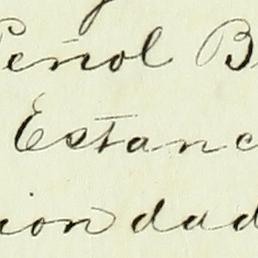 Peñol B
Estanc
ion dad